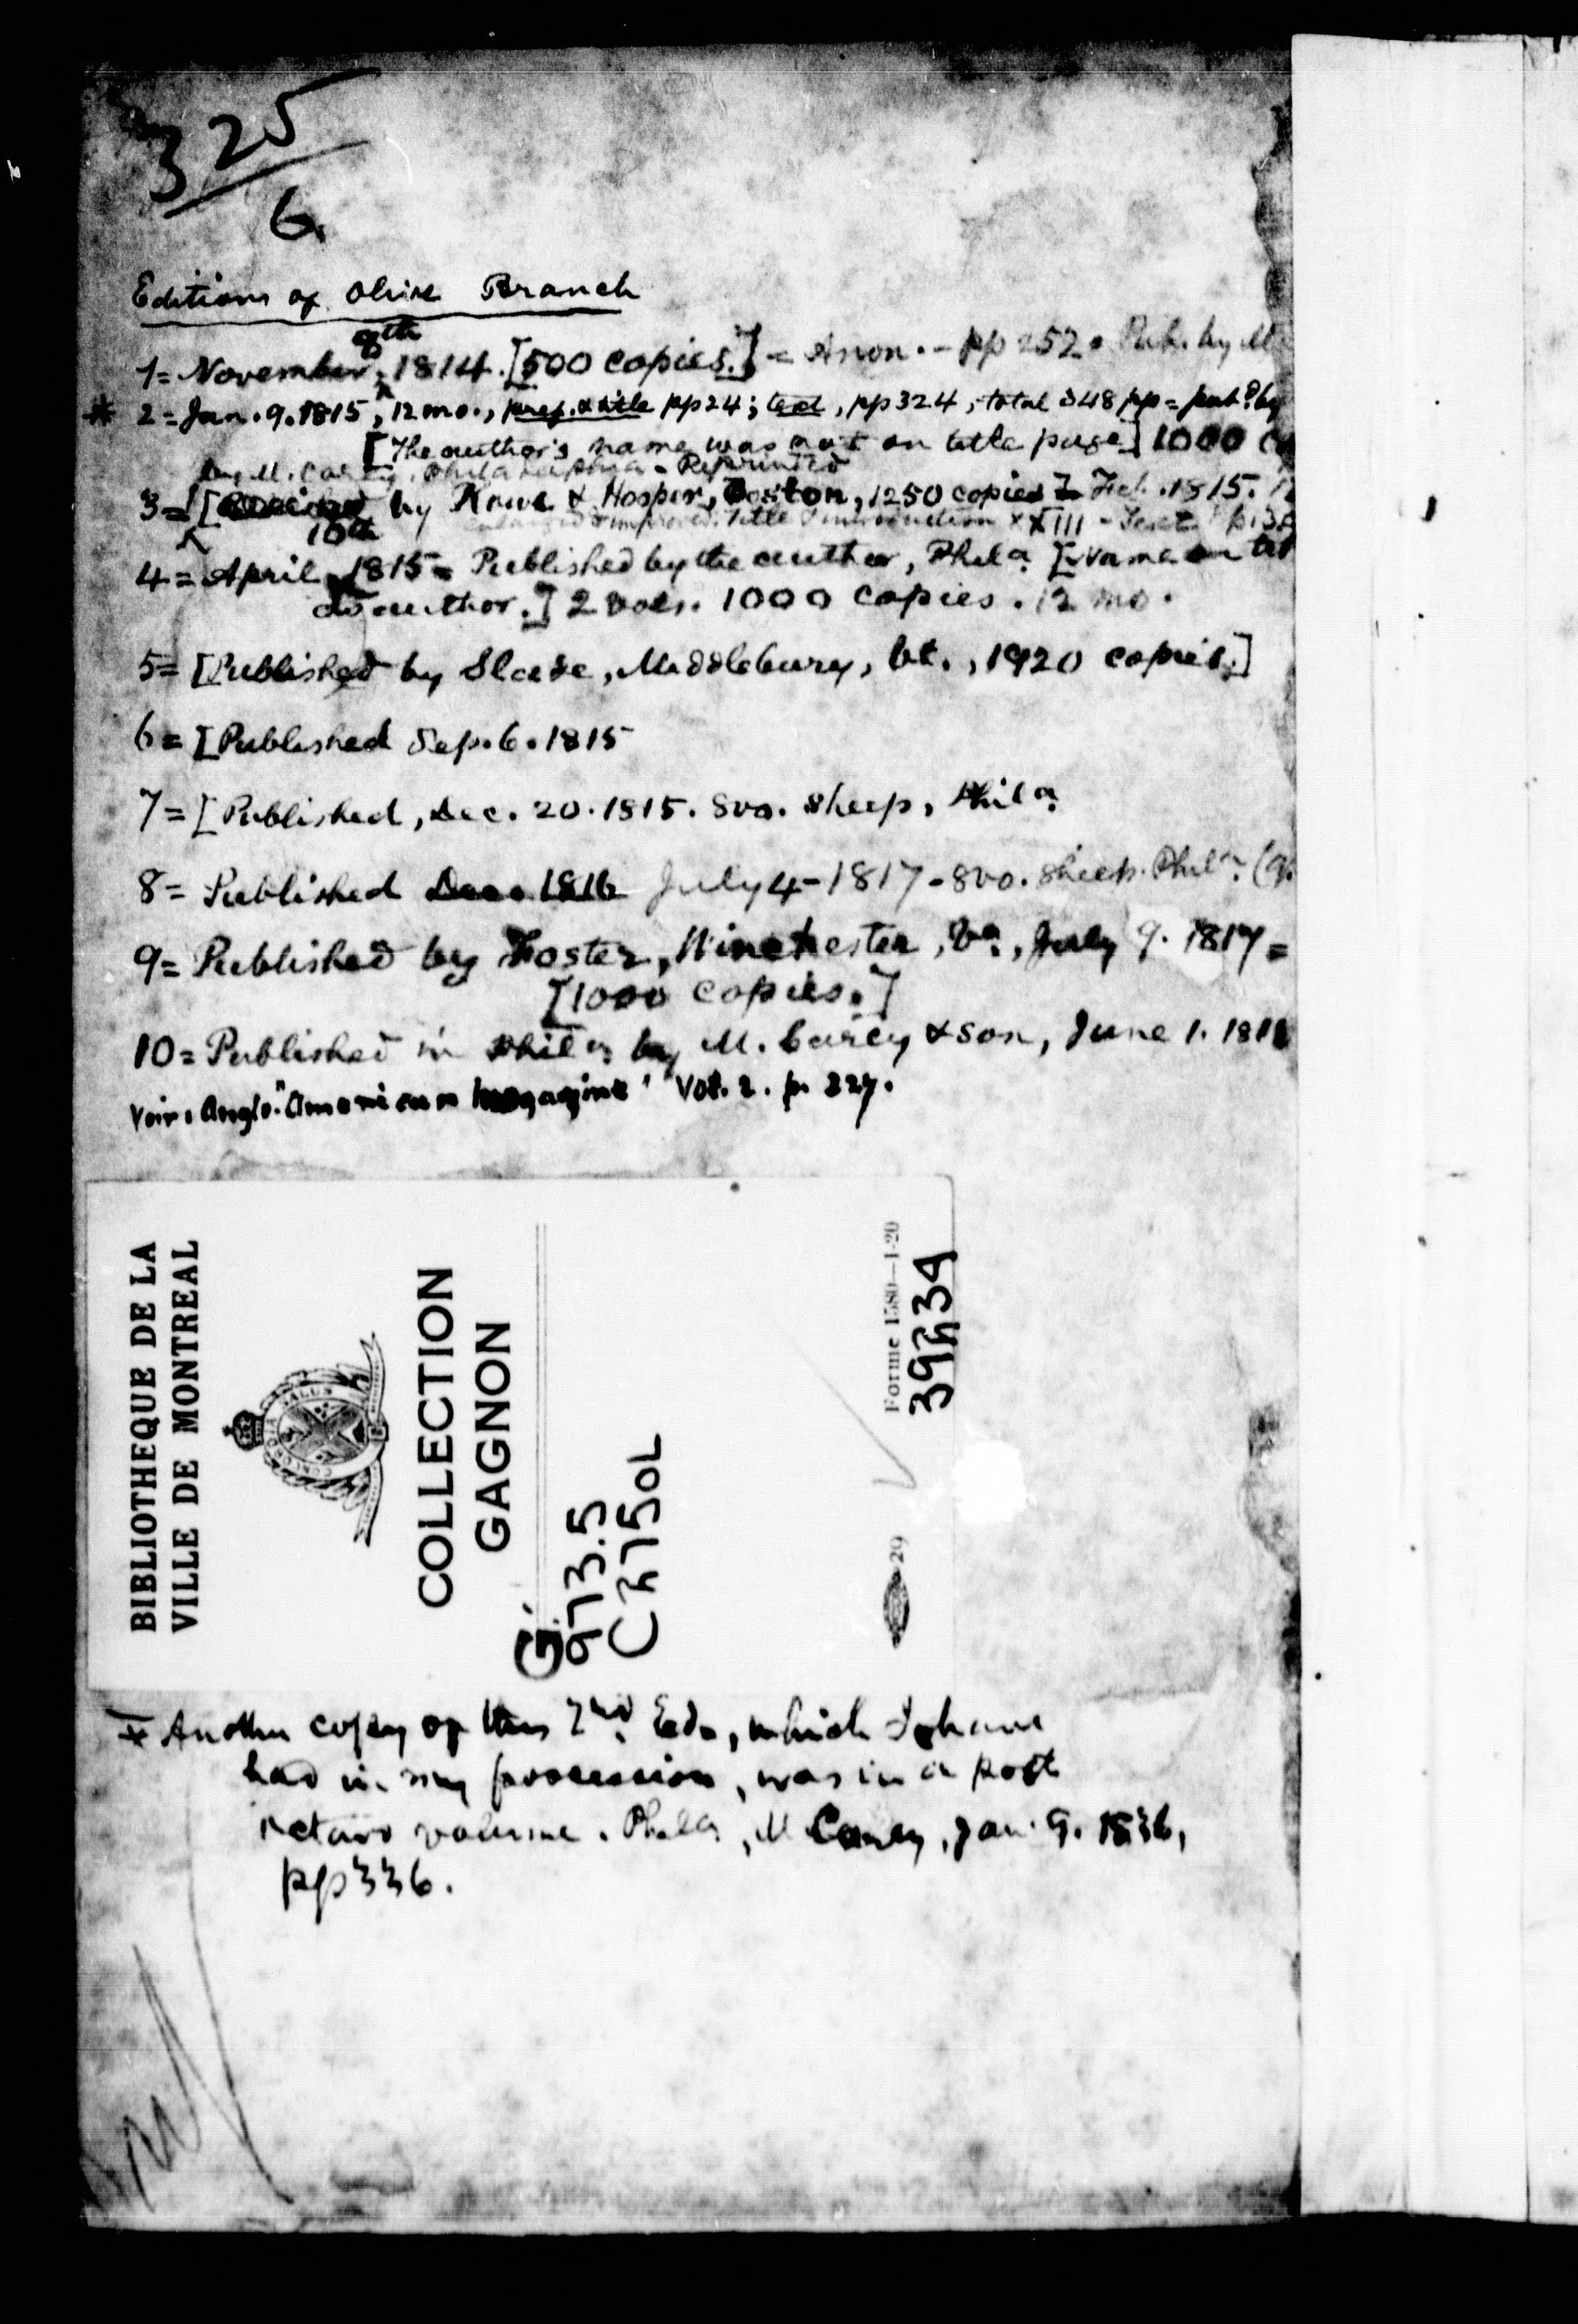 3 25
6
Editions of Olive Branch
8th
1 = November, 1814. [500 copies.] = Anon. - pp 252. Pub. by M
* 2 = Jan. 9. 1815, 12 mo., pref. & title pp 24; text, pp 324, total 348 pp = pub? by
[The author's name was not on title page] 1000
by M. Carey, Philadelphia - Reprinted
3 = [ by Rowe & Hooper, Boston, 1250 copies] Feb. 1815.
enlarged & improved. Title & introduction XXIII - Text
10th
4 = April, 1815 = Published by the author, Phila. [Name on
as author.] 2 vols. 1000 copies. 12 mo.
5 = [Published by Slade, Middlebury, Vt., 1920 copies.]
6 = [Published Sep. 6. 1815
7 = [Published, Dec. 20. 1815. 8vo. Sheep, Phila.
8 = Published Dec. 1816 July 4 - 1817 - 8vo. Sheep. Phila.
9 = Published by Foster, Winchester, Va., July 9. 1817 =
[1000 copies.]
10 = Published in Phila by M. Carey & Son, June 1. 181
Voir: "Anglo-American Magazine" Vol. 2. p. 327.
BIBLIOTHEQUE DE LA
VILLE DE MONTREAL
CONCORDIA SALUS
COLLECTION
GAGNON
G
973.5
C275OL
Forme 1580—1-20
39234
29
* Another copy of this 2nd Edn, which I have
had in my possession, was in a post
octavo volume. Phila, M Carey, Jan. 9. 1836,
pp 336.